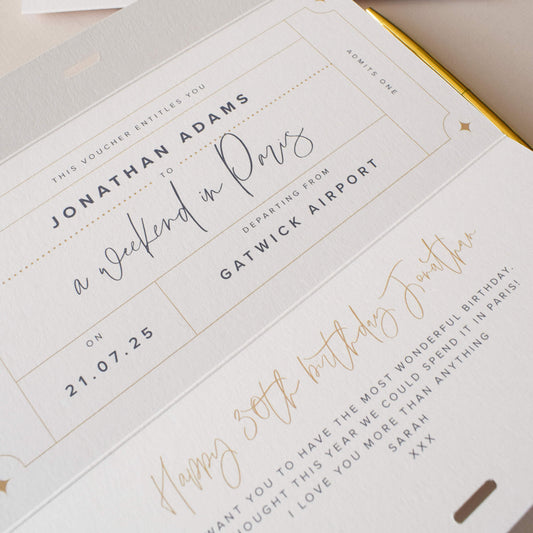 THIS VOUCHER ENTITLES YOU
JONATHAN ADAMS
TO
a weekend in Paris
ON
21.07.25
DEPARTING FROM
GATWICK AIRPORT
ADMITS ONE
Happy 30th birthday Jonathan
WANT YOU TO HAVE THE MOST WONDERFUL BIRTHDAY.
THOUGHT THIS YEAR WE COULD SPEND IT IN PARIS!
I LOVE YOU MORE THAN ANYTHING
SARAH
XXX